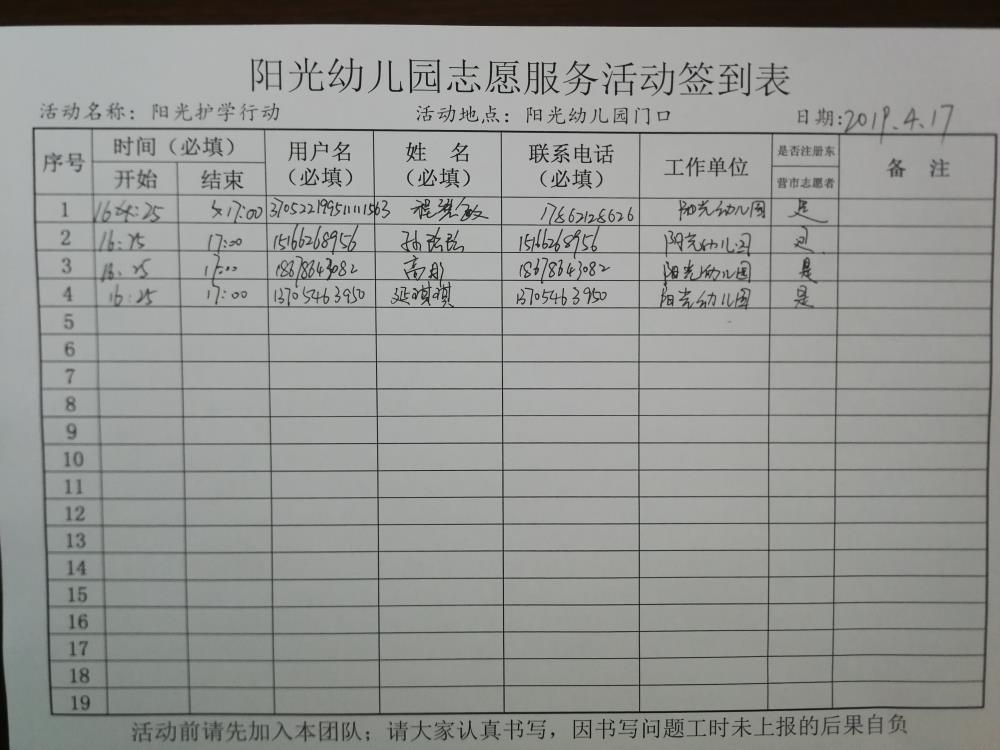 阳光幼儿园志愿服务活动签到表
活动名称：阳光护学行动 活动地点：阳光幼儿园门口 日期:2019.4.17
序号 时间（必填） 开始 结束 用户名（必填） 姓 名（必填） 联系电话（必填） 工作单位 是否注册东营市志愿者 备 注
1 17:00 370522199511111563 17862128626 阳光幼儿园 是
2 16:25 17:00 15166268956 孙 15166268956 阳光幼儿园 是
3 16:25 17:00 18678643082 高彤 18678643082 阳光幼儿园 是
4 16:25 17:00 13705463950 延琪琪 13705463950 阳光幼儿园 是
5
6
7
8
9
10
11
12
13
14
15
16
17
18
19
活动前请先加入本团队；请大家认真书写，因书写问题工时未上报的后果自负